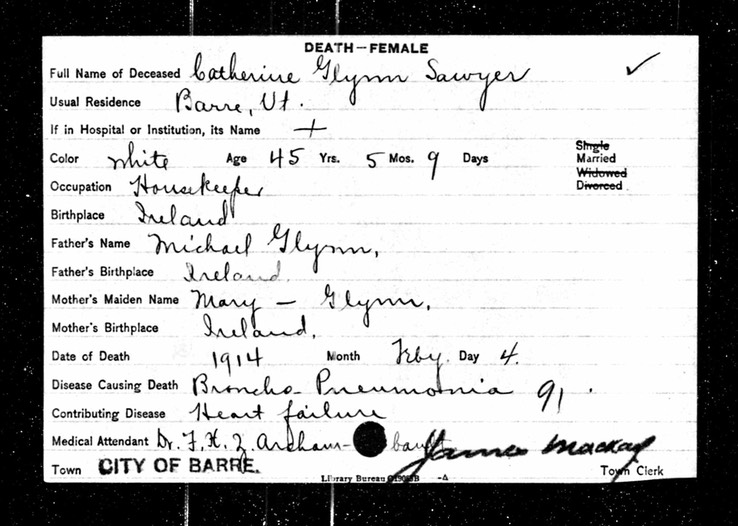 DEATH—FEMALE
Full Name of Deceased Catherine Glynn Sawyer ✓
Usual Residence Barre, Vt.
If in Hospital or Institution, its Name +
Single
Color White Age 45 Yrs. 5 Mos. 9 Days Married
Widowed
Occupation Housekeeper Divorced
Birthplace Ireland
Father's Name Michael Glynn,
Father's Birthplace Ireland.
Mother's Maiden Name Mary — Glynn,
Mother's Birthplace Ireland,
Date of Death 1914 Month Feby. Day 4.
Disease Causing Death Broncho Pneumonia 91.
Contributing Disease Heart failure
Medical Attendant Dr. F. X. Z. Archam-bault
James Mackay
Town CITY OF BARRE. Town Clerk
Library Bureau